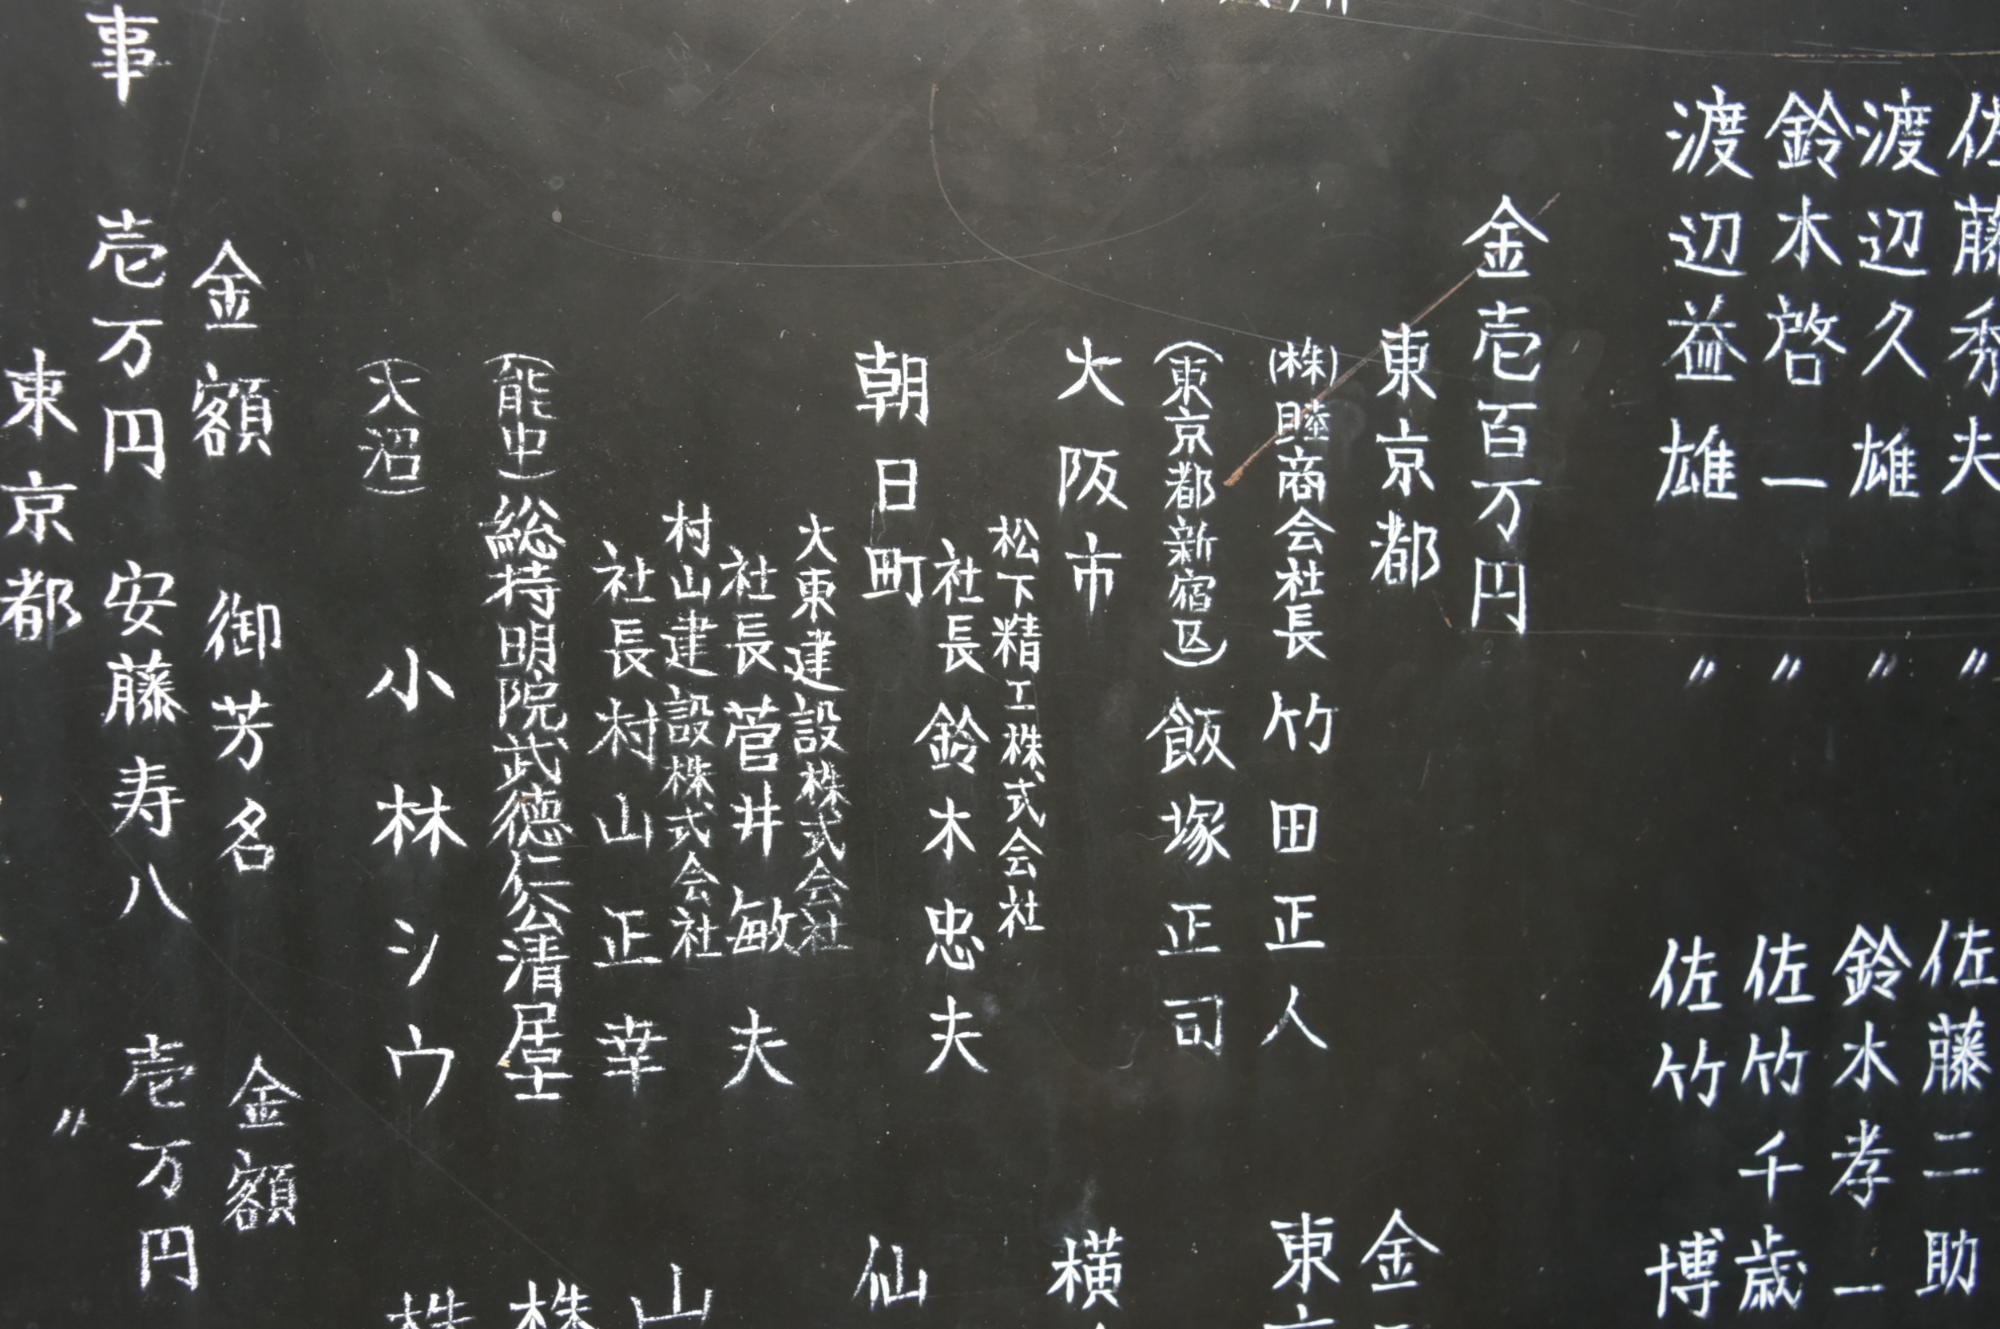 佐藤秀夫 〃 佐藤二助
渡辺久雄 〃 鈴木孝一
鈴木啓一 〃 佐竹千歳
渡辺益雄 〃 佐竹博
金壱百万円
金
東京都
東
(株)睦商会社長 竹田正人
(東京都新宿区) 飯塚正司
大阪市
横
松下精工株式会社
社長 鈴木忠夫
朝日町
仙
大東建設株式会社
社長 菅井敏夫
村山建設株式会社
社長 村山正幸
山
(能中) 総持明院武徳仁公清居士
株
(大沼) 小林シウ
株
金額 御芳名 金額
事 壱万円 安藤寿八 壱万円
東京都 〃